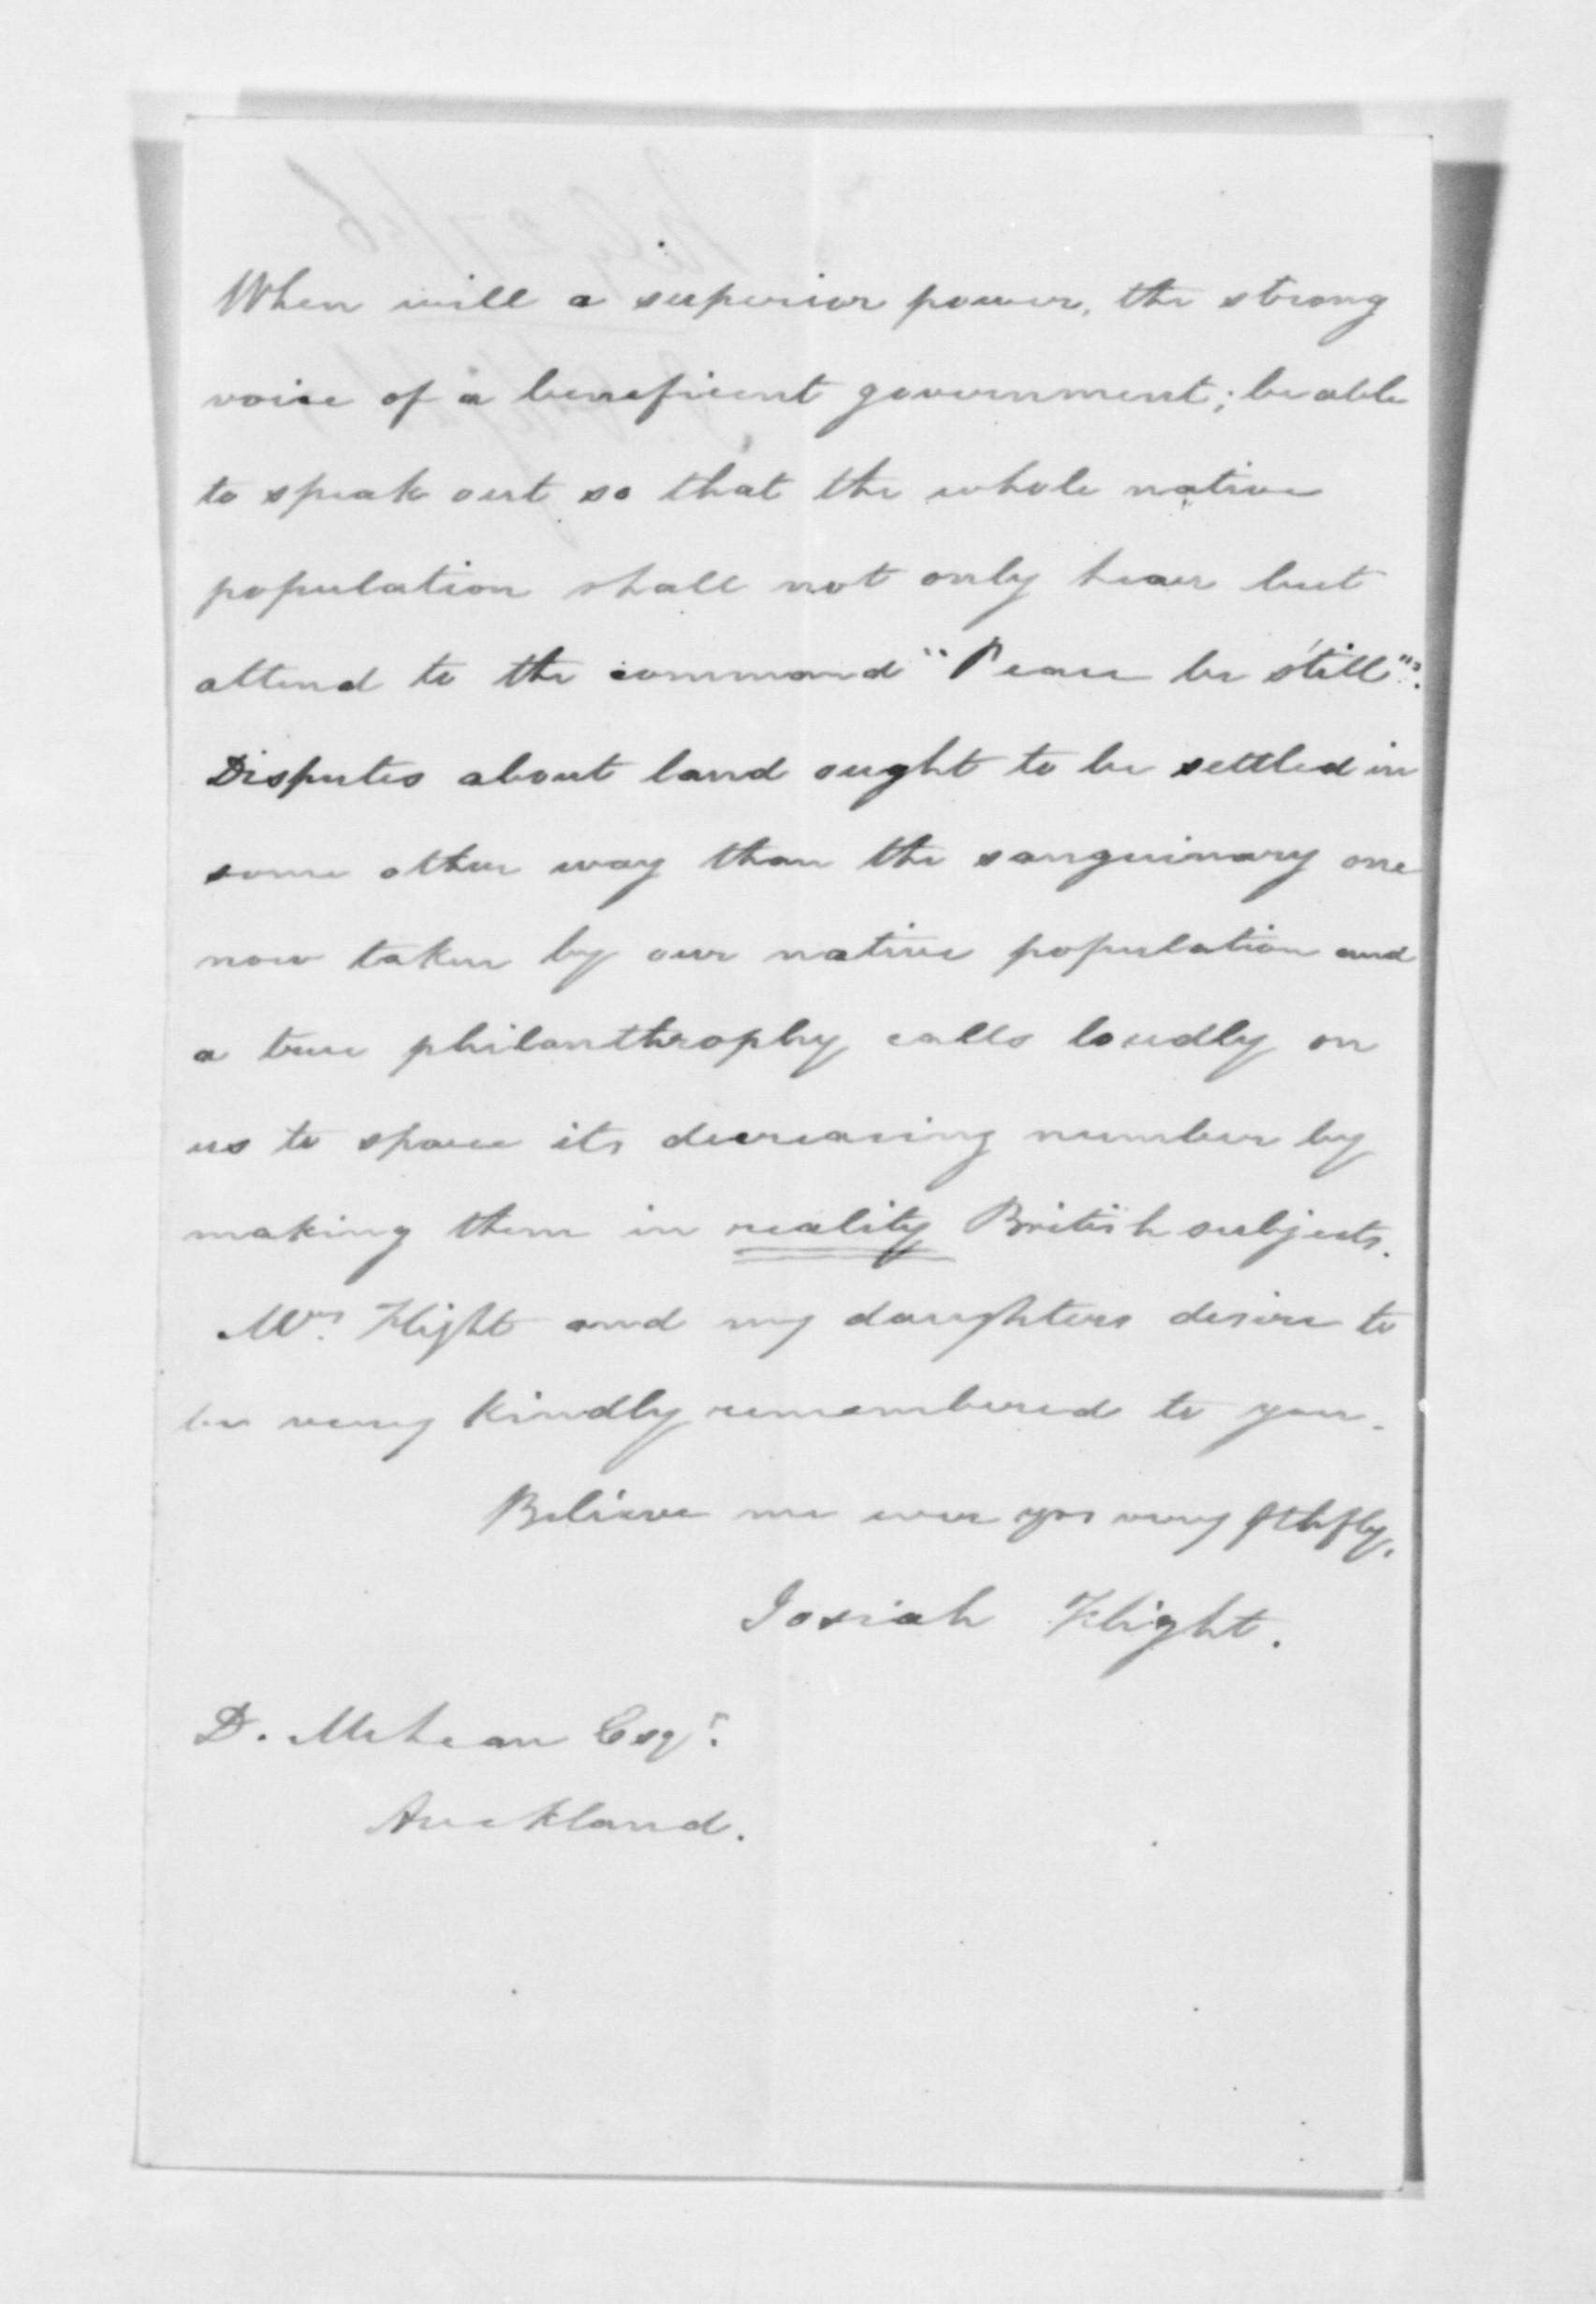 When will a superior power, the strong
voice of a beneficent government; be able
to speak out so that the whole native
population shall not only hear but
attend to the command "Peace be still"?
Disputes about land ought to be settled in
some other way than the sanguinary one
now taken by our native population and
a true philanthrophy calls loudly on
us to spare its decreasing number by
making them in reality British subjects.
Mrs. Flight and my daughters desire to
be very kindly remembered to you.
Believe me ever yrs very fthfly.
Josiah Flight.
D. McLean Esqr.
Auckland.